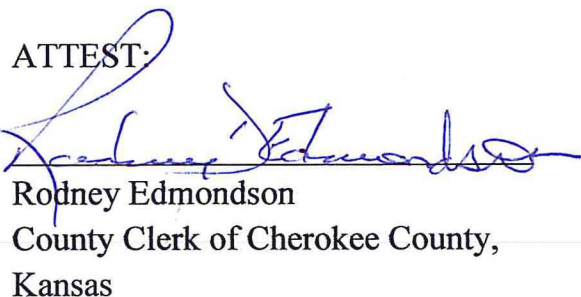 ATTEST:
Rodney Edmondson
Rodney Edmondson
County Clerk of Cherokee County,
Kansas